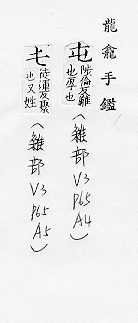 龍龕手鑑
屯陟倫反難
也厚也
（雜部 V3 P65 A4）
徒渾反聚
也又姓
（雜部 V3 P65 A5）